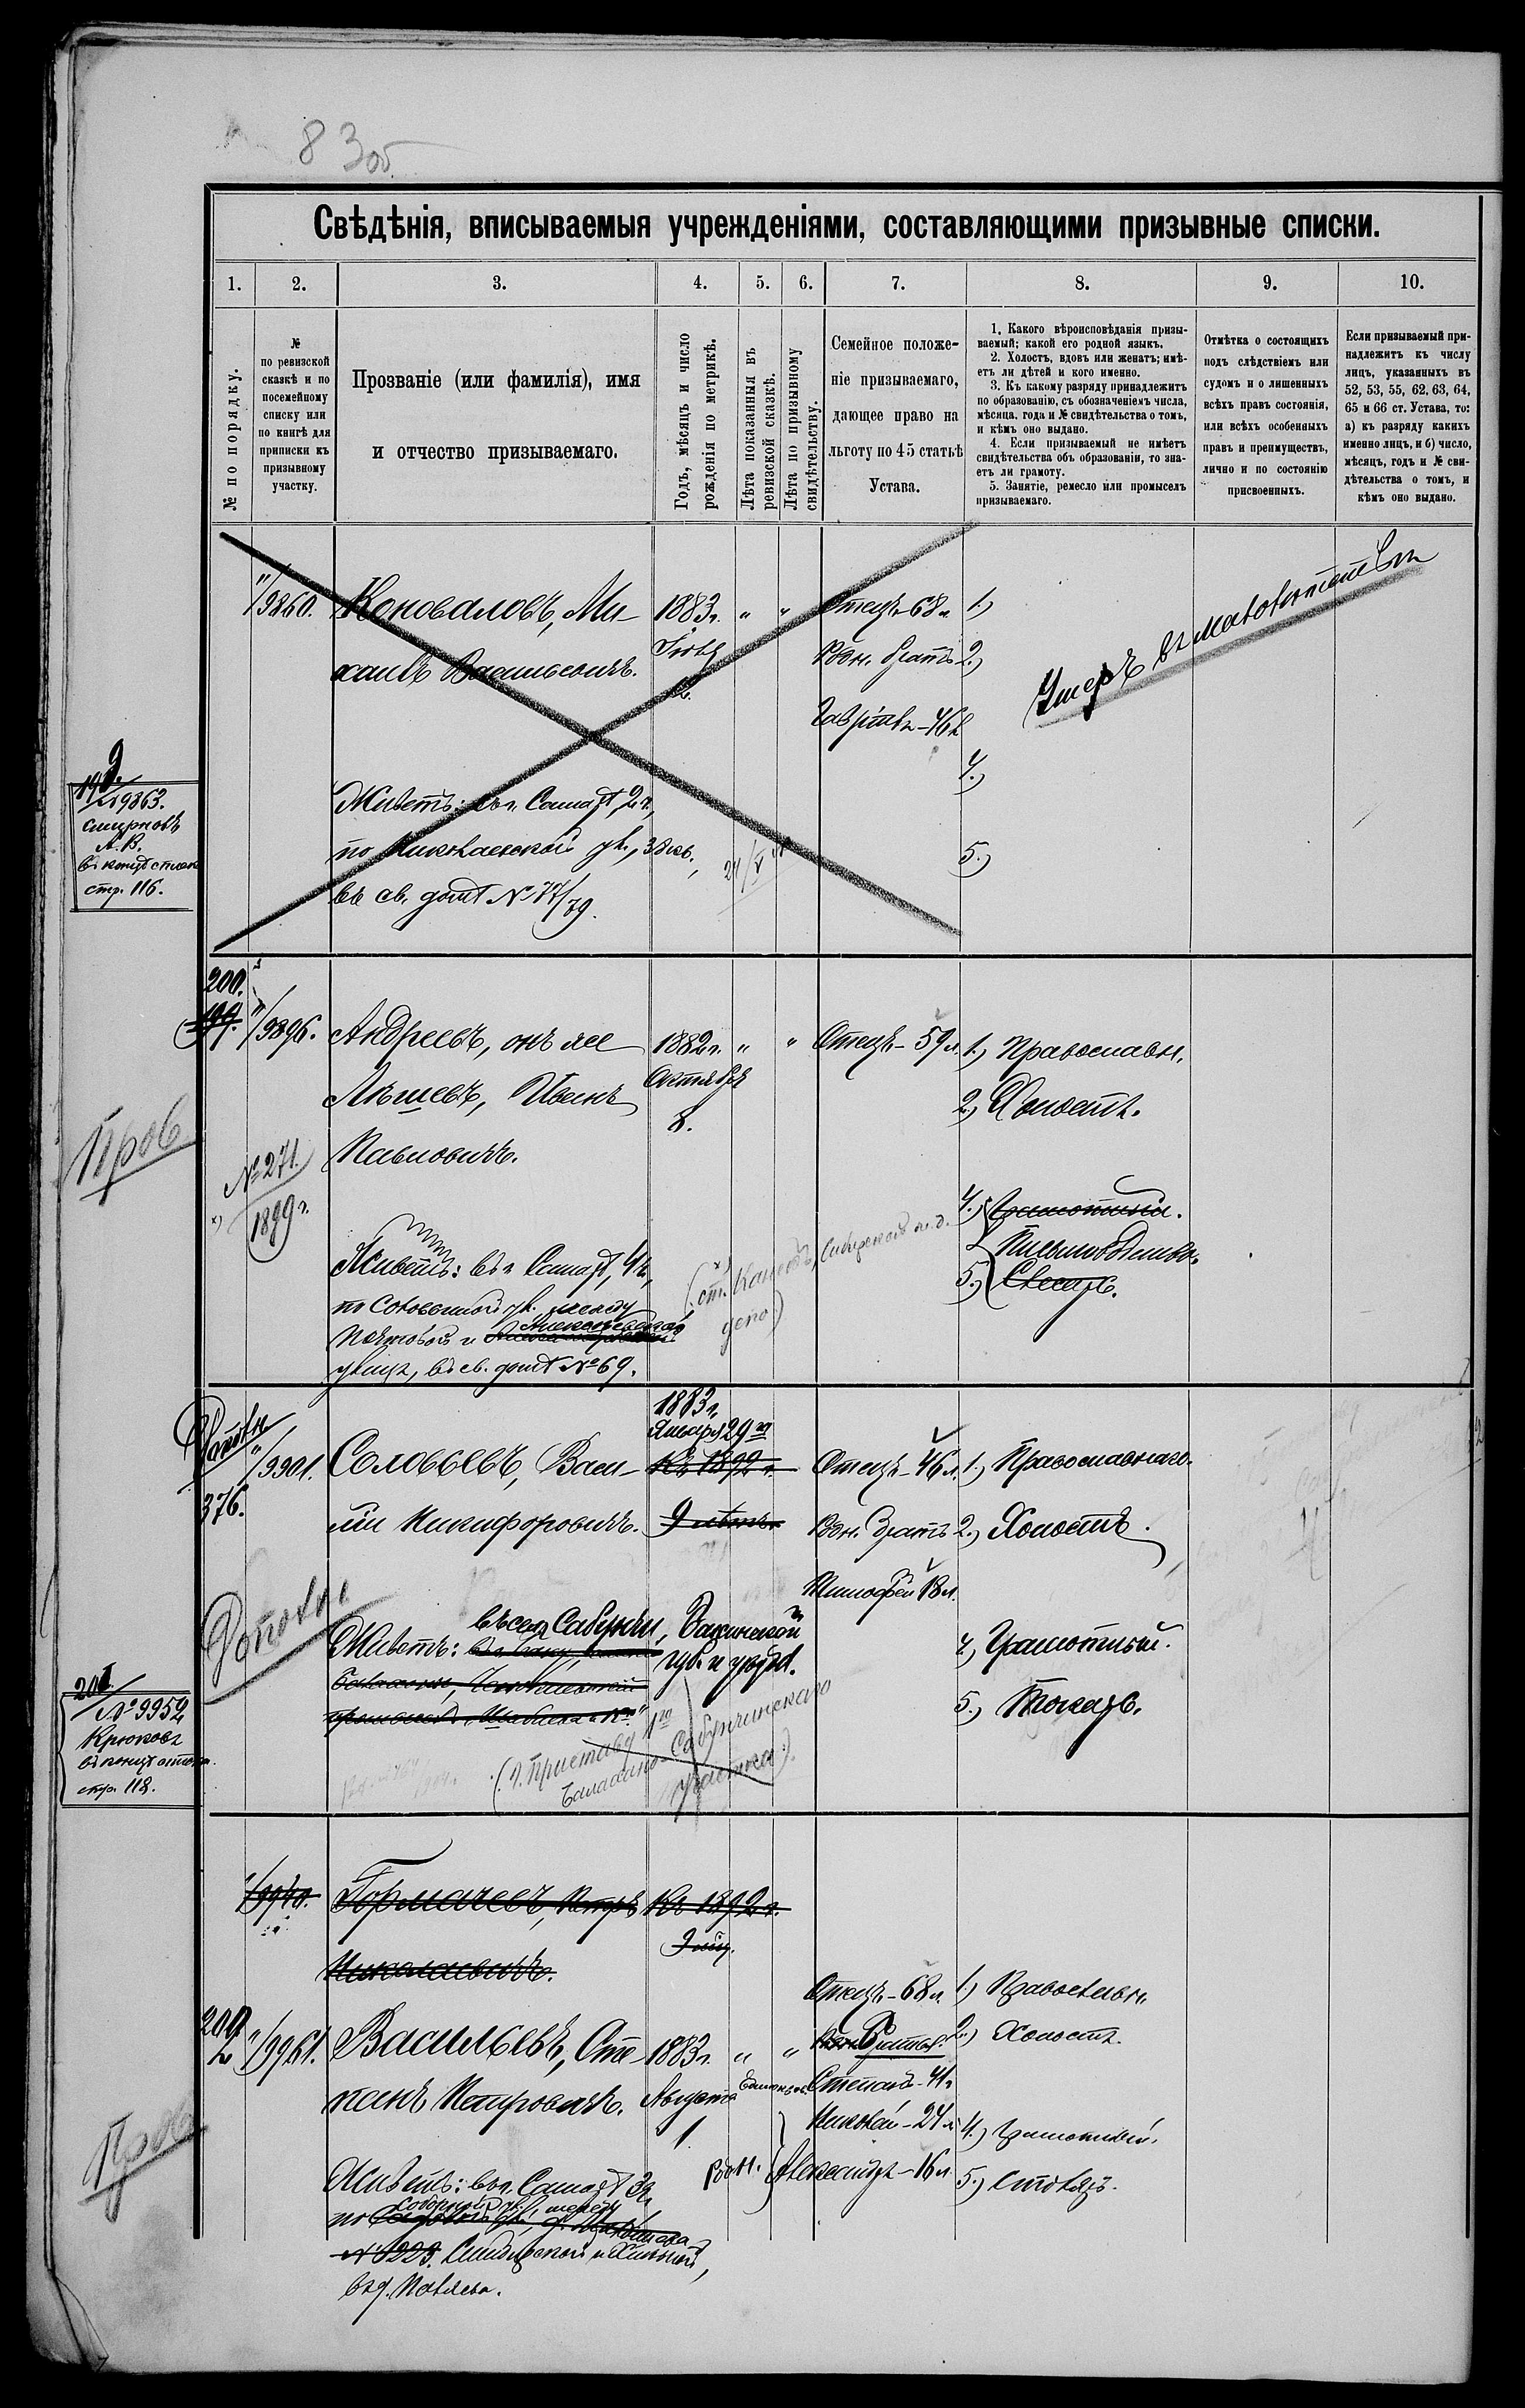 83об
Свѣдѣнія, вписываемыя учрежденіями, составляющими призывные списки.
1. 2. 3. 4. 5. 6. 7. 8. 9. 10.
№ по порядку.
№
по ревизской
сказкѣ и по
посемейному
списку или
по книгѣ для
приписки къ
призывному
участку.
Прозваніе (или фамилія), имя
и отчество призываемаго.
Годъ, мѣсяцъ и число
рожденія по метрикѣ.
Лѣта показанныя въ
ревизской сказкѣ.
Лѣта по призывному
свидѣтельству.
Семейное положе-
ніе призываемаго,
дающее право на
льготу по 45 статьѣ
Устава.
1. Какого вѣроисповѣданія призы-
ваемый; какой его родной языкъ.
2. Холостъ, вдовъ или женатъ; имѣ-
етъ ли дѣтей и кого именно.
3. Къ какому разряду принадлежитъ
по образованію, съ обозначеніемъ числа,
мѣсяца, года и № свидѣтельства о томъ,
и кѣмъ оно выдано.
4. Если призываемый не имѣетъ
свидѣтельства объ образованіи, то зна-
етъ ли грамоту.
5. Занятіе, ремесло или промыселъ
призываемаго.
Отмѣтка о состоящихъ
подъ слѣдствіемъ или
судомъ и о лишенныхъ
всѣхъ правъ состоянія,
или всѣхъ особенныхъ
правъ и преимуществъ,
лично и по состоянію
присвоенныхъ.
Если призываемый при-
надлежитъ къ числу
лицъ, указанныхъ въ
52, 53, 55, 62, 63, 64,
65 и 66 ст. Устава, то:
а) къ разряду какихъ
именно лицъ, и б) число,
мѣсяцъ, годъ и № сви-
дѣтельства о томъ, и
кѣмъ оно выдано.
"/9860. Коноваловъ, Ми-
хаилъ Васильевичъ.
1883г. " "
Отецъ-68л.
Родн. братъ
Гаврiилъ-46л
1.)
2.)
4.)
5.)
Умеръ въ малолѣтствѣ
Живетъ: въ г. Самарѣ, 2 ч.,
по Николаевской ул., 3 кв.,
въ св. домѣ № 77/79.
24/V
9863.
Смирновъ
А. В.
въ концѣ списка
стр. 116.
200.
199.
"/9896. Андреевъ, онъ же
Лѣшевъ, Иванъ
Павловичъ.
1882г. " "
Октября
8.
Отецъ-59л.
1.) Православн.
2.) Холостъ.
4.) Грамотный.
5.) Слесарь.
Пров
№ 271.
1899 г.
Живетъ: въ г. Самарѣ, 4ч.,
по Соловьиной ул. между
Почтовой и Алексѣевской
улиц., въ св. домѣ № 69.
депо)
"/9901. Соловьевъ, Васи-
лій Никифоровичъ.
376.
1883г.
Января 29го
Къ 1892 г.
9 лѣтъ.
Отецъ-46л.
Родн. братъ
Тимофей 18л.
1.) Православнаго.
2.) Холостъ.
4.) Грамотный.
5.) Токарь.
Живетъ: въ сел. Сабунчи, Бакинской
губ. и уѣзда.
(г. Приставу 1го
Балахано-Сабунчинскаго
участка).
201.
№ 9952
Крюковъ
въ концѣ списка
стр. 118.
"/9940. Гормачевъ, Петръ
Николаевичъ.
Къ 1892 г.
"/9961. Васильевъ, Сте-
панъ Петровичъ.
1883г. " "
Августа
1.
Отецъ-68л.
Братья:
Степанъ-41л
Николай-24л.
Родн. Александръ-16л.
1.) Православн.
2.) Холостъ.
4.) Грамотный.
5.) Столяръ.
Пров
Живетъ: въ г. Самарѣ 3ч.
по Соборной ул., между
№ 223. Симбирской и Ильинской,
въ д. Поляева.